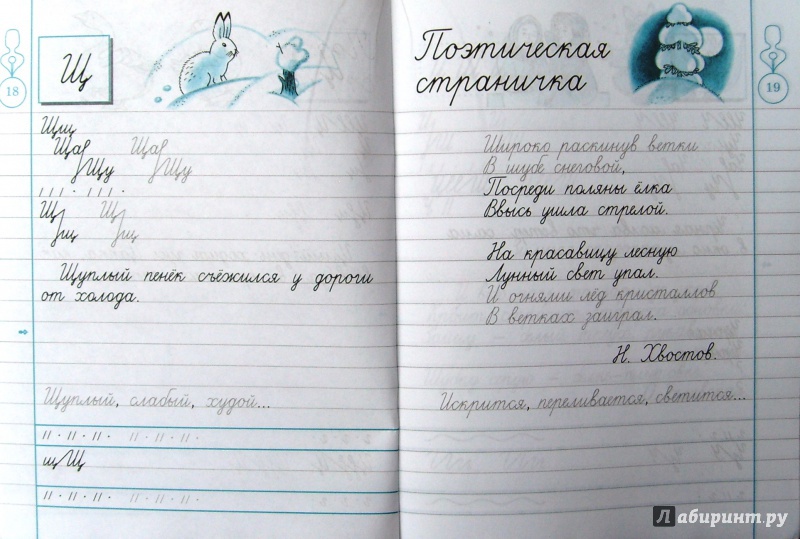 18
Щ
Щщ
Ща Ща
Щу Щу
Щ Щ
щ щ
Щуплый пенёк съёжился у дороги
от холода.
Щуплый, слабый, худой...
щЩ
Поэтическая
страничка
19
Широко раскинув ветки
В шубе снеговой,
Посреди поляны ёлка
Ввысь ушла стрелой.
На красавицу лесную
Лунный свет упал.
И огнями лёд кристаллов
В ветках заиграл.
Н. Хвостов.
Искрится, переливается, светится...
Лабиринт.ру